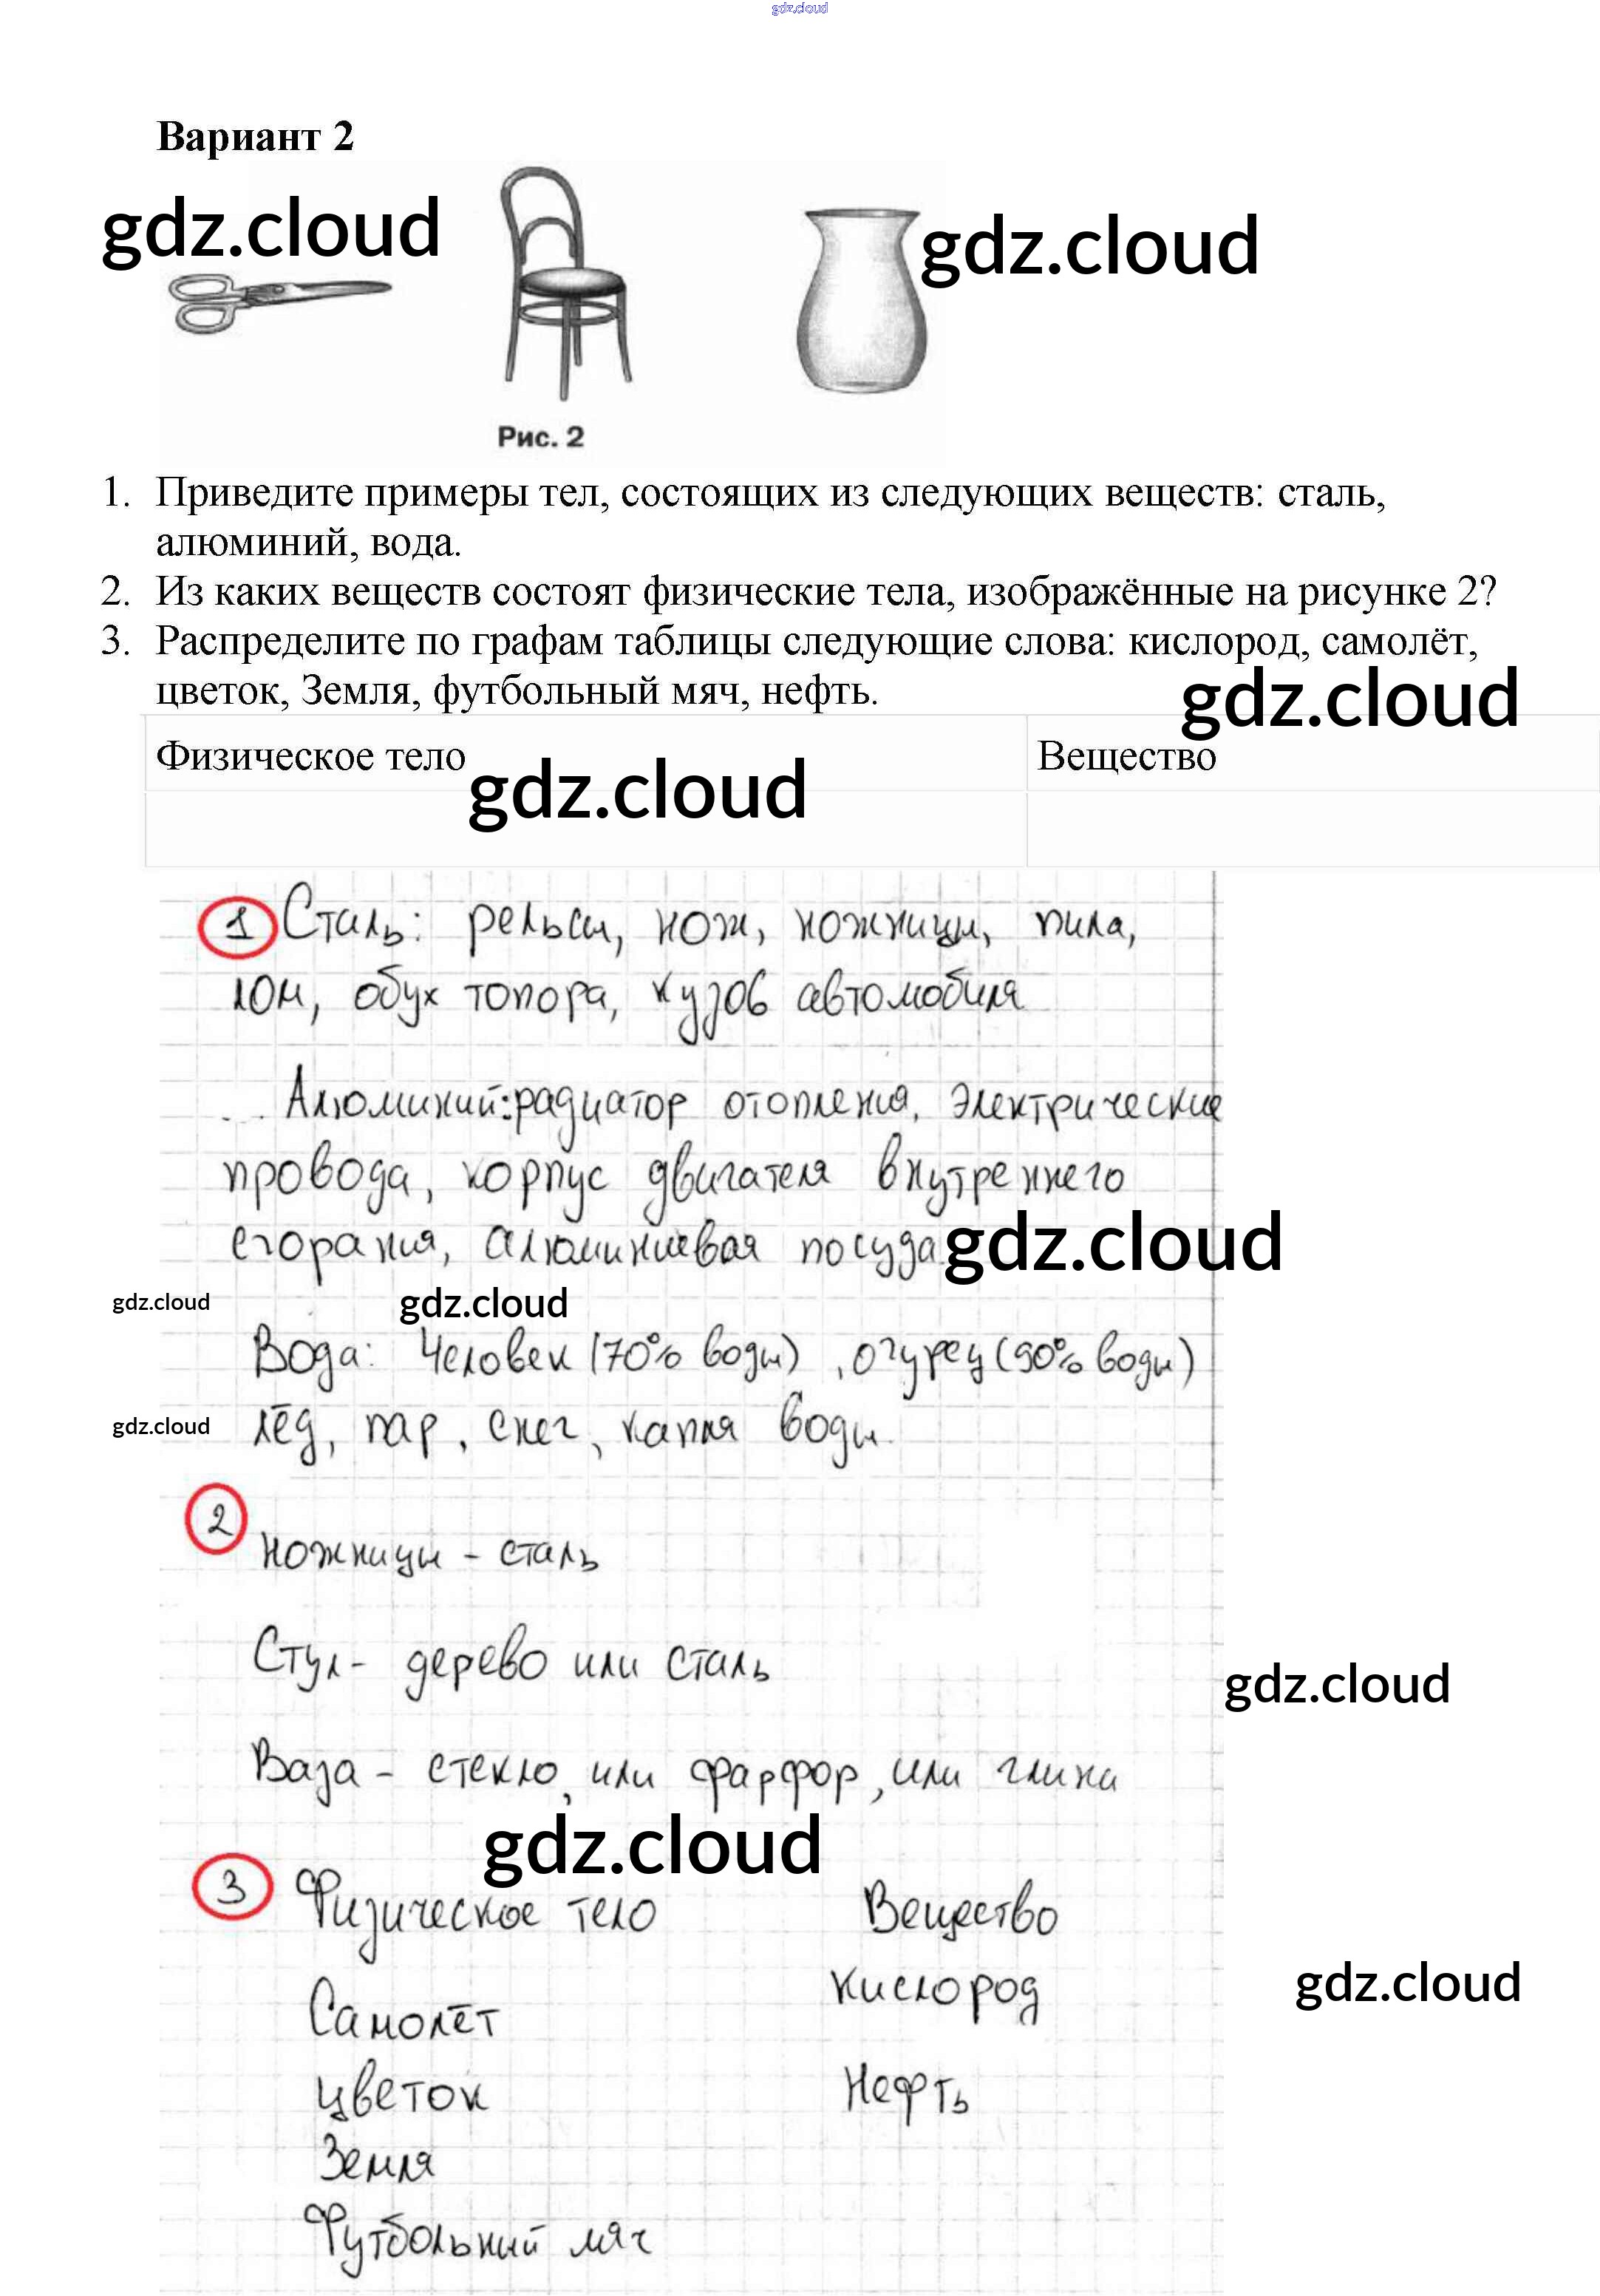 gdz.cloud
Вариант 2
gdz.cloud
gdz.cloud
Рис. 2
1. Приведите примеры тел, состоящих из следующих веществ: сталь,
алюминий, вода.
2. Из каких веществ состоят физические тела, изображённые на рисунке 2?
3. Распределите по графам таблицы следующие слова: кислород, самолёт,
цветок, Земля, футбольный мяч, нефть.
gdz.cloud
Физическое тело
Вещество
gdz.cloud
1 Сталь: рельсы, нож, ножницы, пила,
лом, обух топора, кузов автомобиля
Алюминий: радиатор отопления, электрические
провода, корпус двигателя внутреннего
сгорания, алюминиевая посуда
gdz.cloud
gdz.cloud
gdz.cloud
Вода: Человек (70% воды), огурец (90% воды)
gdz.cloud
лёд, пар, снег, капля воды
2
Ножницы - сталь
Стул - дерево или сталь
gdz.cloud
Ваза - стекло, или фарфор, или глина
gdz.cloud
3 Физическое тело Вещество
Кислород
gdz.cloud
Самолёт
Цветок Нефть
Земля
Футбольный мяч